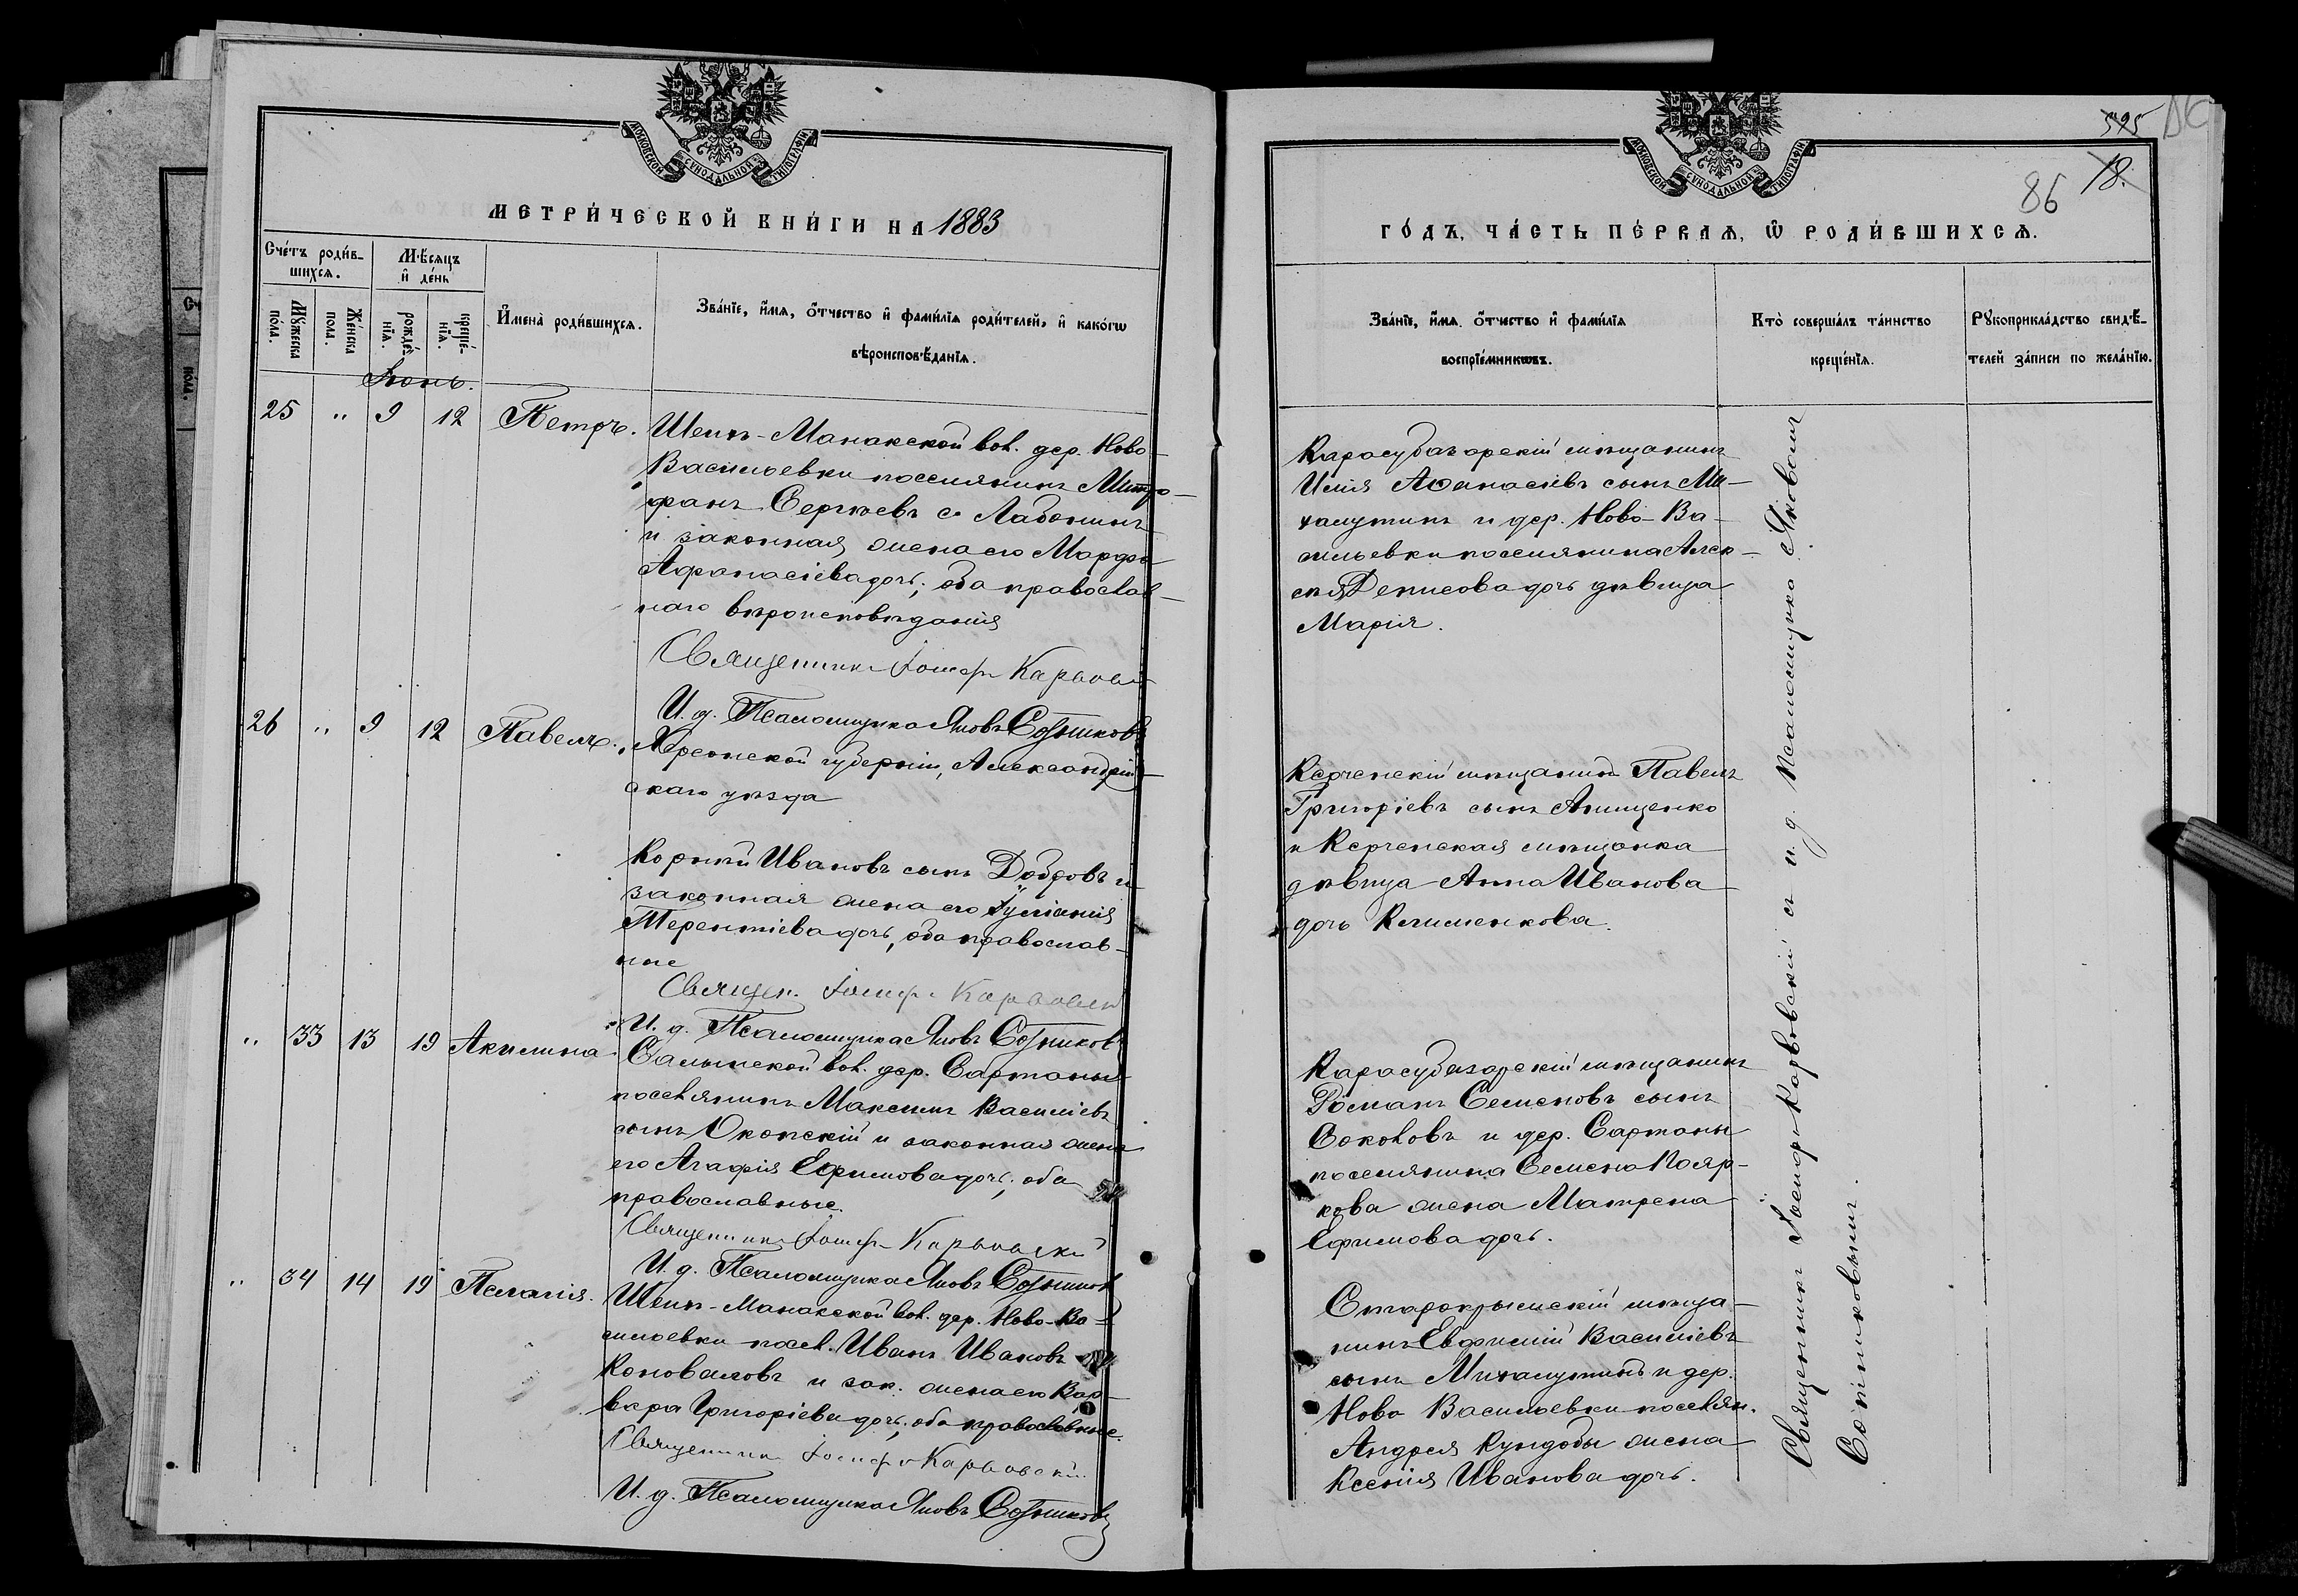 МОСКОВСКОЙ СУНОДАЛЬНОЙ ТИПОГРАФІИ
МЕТРИ́ЧЕСКОЙ КНИ́ГИ НА 1883
Сче́тъ роди́в-
шихся.
Мѣ́сяцъ
и҆ де́нь
Мꙋ́жеска
по́ла.
Же́нска
пола.
рожде́-
нїѧ.
креще́-
нїѧ.
И҆мена̀ роди́вшихсѧ.
Зва́нїе, и҆́мѧ, ѻ҆́тчество и҆ фами́лїѧ роди́телей, и҆ како́гѡ
вѣроисповѣ́данїѧ.
Іюнь.
25 " 9 12 Петръ.
Шеихъ-Манакской вол. дер. Ново-
Васильевки поселянинъ Митро-
фанъ Сергѣевъ с. Лабонинъ
и законная жена его Марфа
Афанасіева дочь, оба православ-
наго вѣроисповѣданія
Священникъ Іосифъ Карвовск
И. д. Псаломщика Яковъ Сотниковъ
26 " 9 12 Павелъ.
Херсонской губерніи, Александрій-
скаго уѣзда
Корній Ивановъ сынъ Добровъ и
законная жена его Іуліанія
Терентіева дочь, оба православ-
ные
Священ. Іосифъ Карвовск
И. д. Псаломщика Яковъ Сотниковъ
" 33 13 19 Акилина
Салынской вол. дер. Сартаны
поселянинъ Максимъ Василіевъ
сынъ Оконскій и законная жена
его Агафія Ефимова дочь, оба
православные.
Священникъ Іосифъ Карвовскій
И. д. Псаломщика Яковъ Сотников
" 34 14 19 Пелагія.
Шеихъ-Манакской вол. дер. Ново-Ва-
сильевки посел. Иванъ Ивановъ
Коноваловъ и зак. жена его Вар-
вара Григоріева дочь, оба православные.
Священникъ Іосифъ Карвовскій
И. д. Псаломщика Яковъ Сотниковъ
МОСКОВСКОЙ СУНОДАЛЬНОЙ ТИПОГРАФІИ
595
18.
86
ГО́ДЪ, ЧА́СТЬ ПЕ́РВАѦ, Ѡ҆ РОДИ́ВШИХСѦ.
Зва́нїе, и҆́мѧ, ѻ҆́тчество и҆ фами́лїѧ
воспрїе́мникѡвъ.
Кто̀ соверша́лъ та́инство
креще́нїѧ.
Рꙋкоприкла́дство свидѣ́-
телей за́писи по жела́нїю.
Карасубазарскій мѣщанинъ
Илія Аѳанасіевъ сынъ Ми-
халутинъ и дер. Ново-Ва-
сильевки поселянина Алек-
сія Денисова дочь дѣвица
Марія.
Керченскій мѣщанинъ Павелъ
Григоріевъ сынъ Анищенко
и Керченская мѣщанка
дѣвица Анна Иванова
дочь Клименкова.
Карасубазарскій мѣщанинъ
Романъ Семеновъ сынъ
Соколовъ и дер. Сартаны
поселянина Семена Пояр-
кова жена Матрена
Ефимова дочь.
Старокрымскій мѣща-
нинъ Евфимій Василіевъ
сынъ Михалутинъ и дер.
Ново Васильевки поселян.
Андрея Кундобы жена
Ксенія Иванова дочь.
Священникъ Іосифъ Карвовскій съ и. д. Псаломщика Яковомъ
Сотниковымъ.